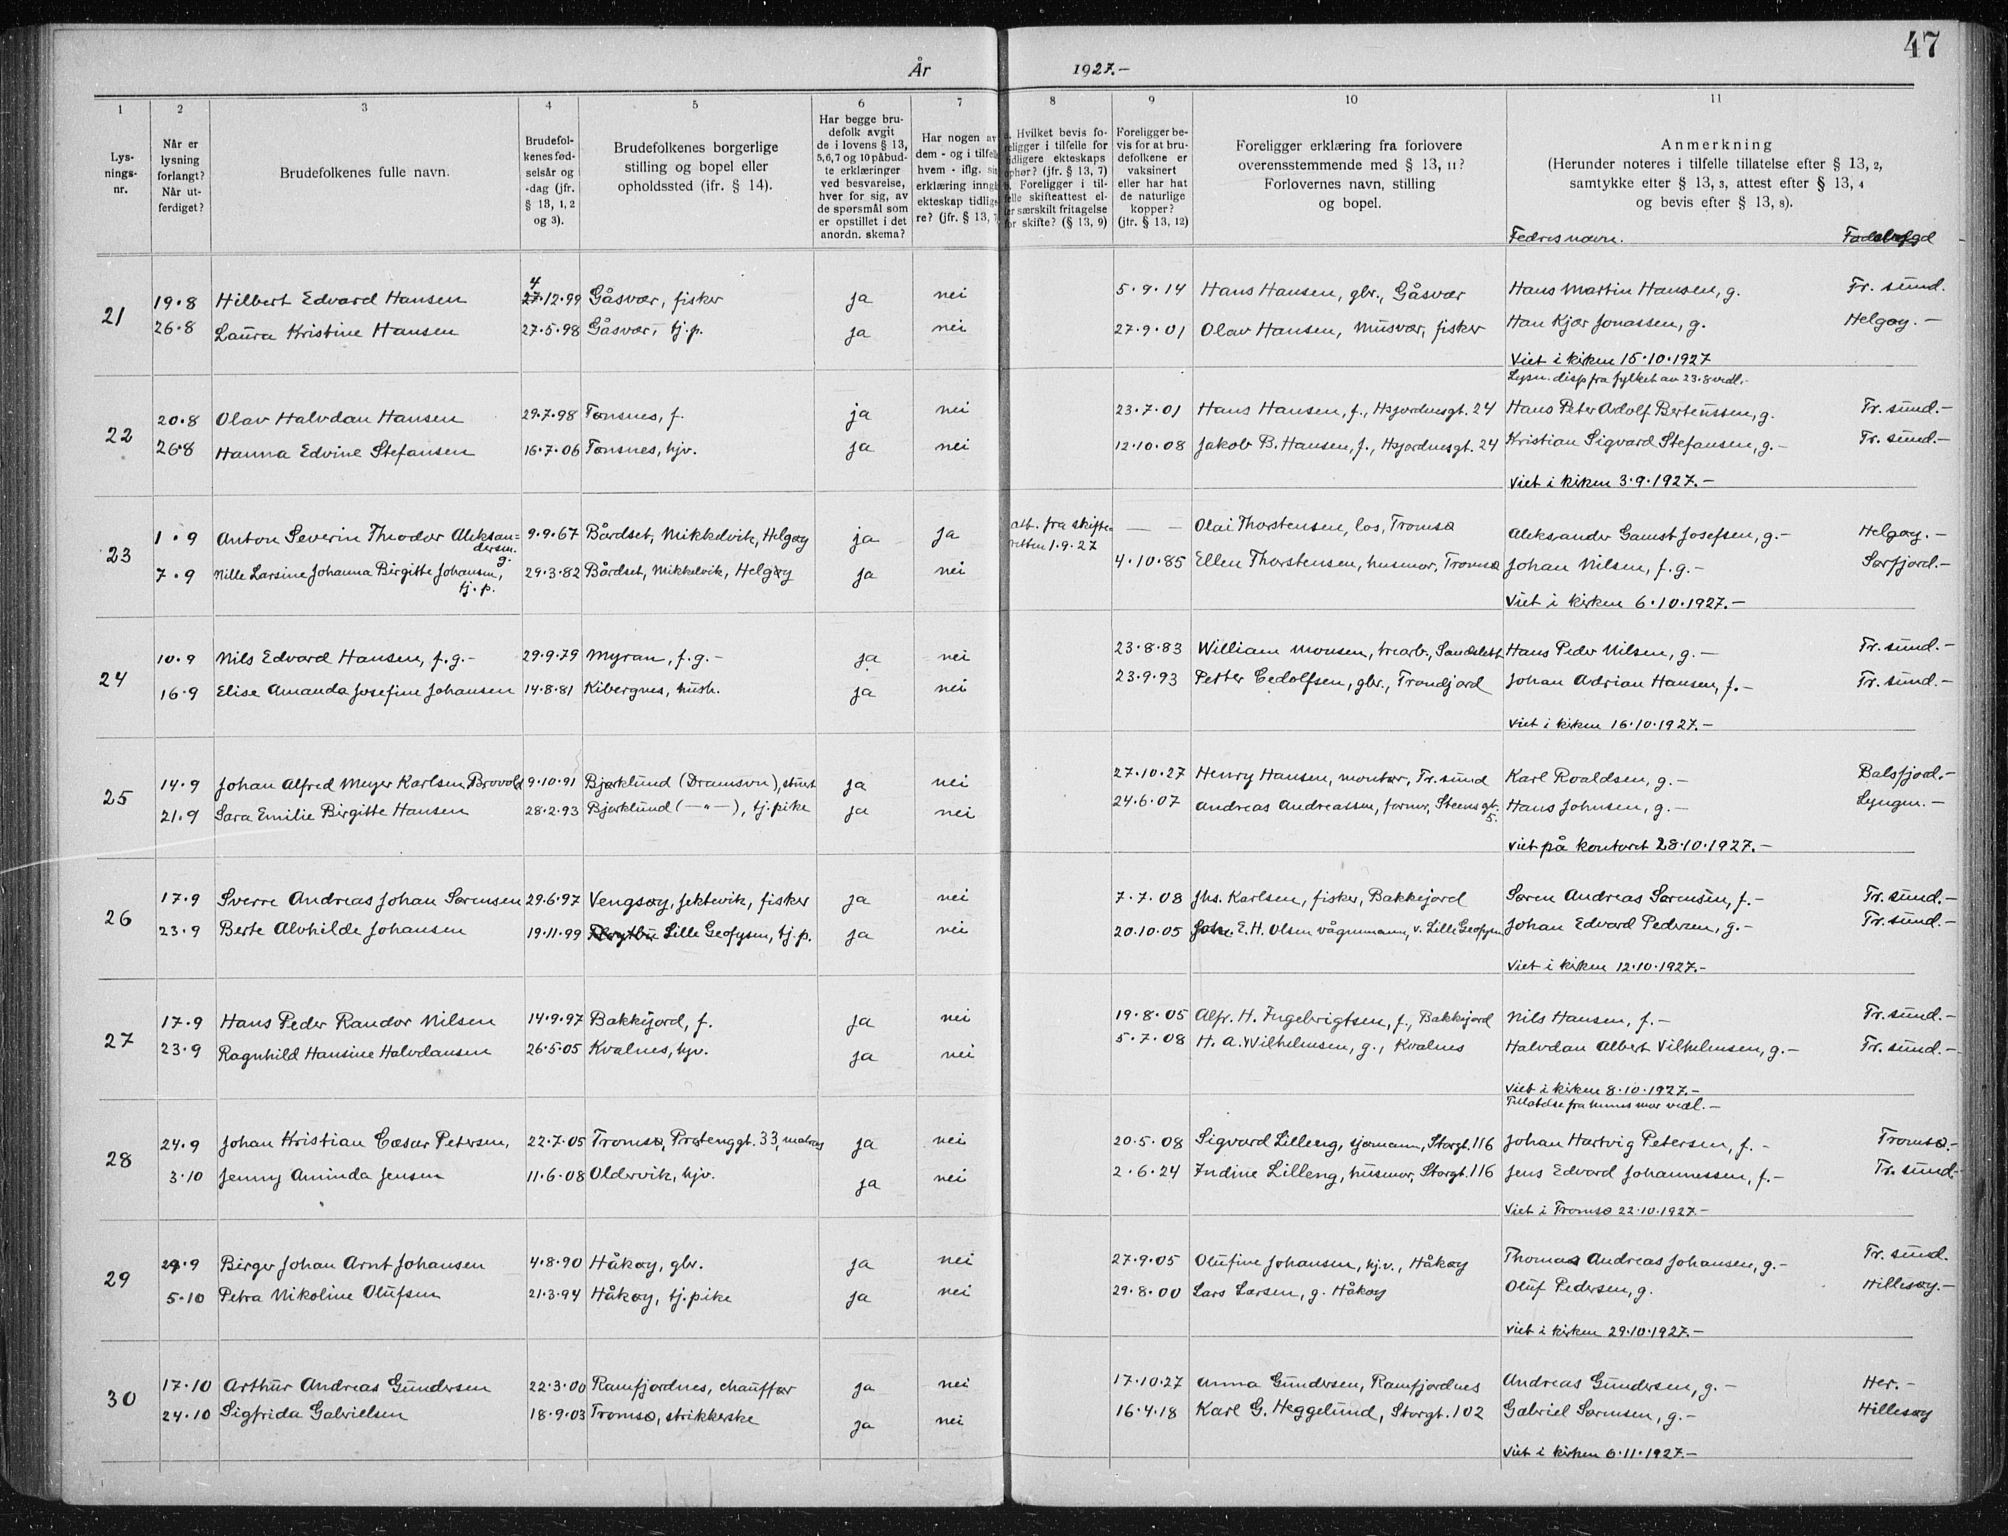 47
År 1927.-
1 2 3 4 5 6 7 8 9 10 11
Lys-
nings-
nr.
Når er
lysning
forlangt?
Når ut-
ferdiget?
Brudefolkenes fulle navn.
Brudefol-
kenes fød-
selsår og
-dag (jfr.
§ 13, 1, 2
og 3).
Brudefolkenes borgerlige
stilling og bopel eller
opholdssted (jfr. § 14).
Har begge bru-
defolk avgit
de i lovens § 13,
5,6,7 og 10 påbud-
te erklæringer
ved besvarelse,
hver for sig, av
de spørsmål som
er opstillet i det
anordn. skema?
Har nogen av
dem - og i tilfelle
hvem - iflg. sin
erklæring inngå
ekteskap tidlig
re? (jfr. § 13, 7
Hvilket bevis fo-
religger i tilfelle for
tidligere ekteskaps
ophør? (jfr. § 13, 7)
Foreligger i til-
felle skifteattest el-
ler særskilt fritagelse
for skifte? (§ 13, 9)
Foreligger be-
vis for at bru-
defolkene er
vaksinert
eller har hat
de naturlige
kopper?
(jfr. § 13, 12)
Foreligger erklæring fra forlovere
overensstemmende med § 13, 11?
Forlovernes navn, stilling
og bopel.
Anmerkning
(Herunder noteres i tilfelle tillatelse efter § 13, 2,
samtykke efter § 13, 3, attest efter § 13, 4
og bevis efter § 13, 8).
Fedres navn.
21
19.8 Hilbert Edvard Hansen 4 27.12.99 Gåsvær, fisker ja nei 5.9.14 Hans Hansen, gbr., Gåsvær Hans Martin Hansen, g. Tr. sund.
26.8 Laura Kristine Hansen 27.5.98 Gåsvær, tj.p. ja nei 27.9.01 Olav Hansen, Musvær, fisker Han Kjær Jonassen, g. Helgøy.-
Viet i kirken 15.10.1927
Lysn. disp fra fylket av 23.8 vedl.-
22
20.8 Olav Halvdan Hansen 29.7.98 Tønsnes, f. ja nei 23.7.01 Hans Hansen, f., Hsjordnesgt. 24 Hans Peter Adolf Berteussen, g. Tr. sund.-
26.8 Hanna Edvine Stefansen 16.7.06 Tønsnes, hjv. ja nei 12.10.08 Jakob B. Hansen, f., Hsjordnesgt. 24 Kristian Sigvard Stefansen, g.- Tr. sund.-
Viet i kirken 3.9.1927.-
23
1.9 Anton Severin Theodor Aleksan=
dersen. g. 9.9.67 Bårdset, Mikkelvik, Helgøy ja ja att. fra skifte=
retten 1.9.27 — — Olai Thorstensen, los, Tromsø Aleksander Gamst Josefsen, g.- Helgøy.-
7.9 Nille Larsine Johanna Birgitte Johansen,
tj.p. 29.3.82 Bårdset, Mikkelvik, Helgøy ja nei 4.10.85 Ellen Thorstensen, husmor, Tromsø Johan Nilsen, f.g.- Sørfjord.-
Viet i kirken 6.10.1927.-
24
10.9 Nils Edvard Hansen, f.g.- 29.9.79 Myran, f.g.- ja nei 23.8.83 William Monsen, trearb., Sandslett Hans Peder Nilsen, g.- Tr. sund.-
16.9 Elise Amanda Josefine Johansen 14.8.81 Kibergnes, hush. ja nei 23.9.93 Petter Cedolfsen, gbr., Trondjord Johan Adrian Hansen, f.- Tr. sund.-
Viet i kirken 16.10.1927.-
25
14.9 Johan Alfred Meyer Karlsen Brovold 9.10.91 Bjørklund (Dramsvn), stuert ja nei 27.10.27 Henry Hansen, montør, Tr. sund Karl Roaldsen, g.- Balsfjord.-
21.9 Sara Emilie Birgitte Hansen 28.2.93 Bjørklund (—"—), tj.pike ja nei 24.6.07 Andreas Andreassen, former, Steensgt.
5. Hans Johnsen, g.- Lyngen.-
Viet på kontoret 28.10.1927.-
26
17.9 Sverre Andreas Johan Sørensen 29.6.97 Vengsøy, Jektevik, fisker ja nei 7.7.08 Jhs. Karlsen, fisker, Bakkejord Søren Andreas Sørensen, f.- Tr. sund.-
23.9 Berte Alvhilde Johansen 19.11.99 Lille Geofysen, tj.p. ja nei 20.10.05 E.H. Olsen vågnmann, v. Lille Geofysen Johan Edvard Pedersen, g.- Tr. sund.-
Viet i kirken 12.10.1927.-
27
17.9 Hans Peder Randor Nilsen 14.9.97 Bakkejord, f. ja nei 19.8.05 Alfr. H. Ingebrigtsen, f., Bakkejord Nils Hansen, f.- Tr. sund.-
23.9 Ragnhild Hansine Halvdansen 26.5.05 Kvalnes, hjv. ja nei 5.7.08 H.A. Wilhelmsen, g., Kvalnes Halvdan Albert Vilhelmsen, g.- Tr. sund.-
Viet i kirken 8.10.1927.-
Tillatelse fra hennes mor vedl.-
28
24.9 Johan Kristian Cæsar Petersen, 22.7.05 Tromsø, Prøstenggt. 33, matros ja nei 20.5.08 Sigvard Lilleng, sjømann, Storgt. 116 Johan Hartvig Petersen, f.- Tromsø.-
3.10 Jenny Aminda Jensen 11.6.08 Oldervik, hjv. ja nei 2.6.24 Indine Lilleng, husmor, Storgt. 116 Jens Edvard Johannessen, f.- Tr. sund.-
Viet i Tromsø 22.10.1927.-
29
29.9 Birger Johan Arnt Johansen 4.8.90 Håkøy, gbr. ja nei 27.9.05 Olufine Johansen, hj.v., Håkøy Thomas Andreas Johansen, g.- Tr. sund.
5.10 Petra Nikoline Olufsen 21.3.94 Håkøy, tj.pike ja nei 29.8.00 Lars Larsen, g. Håkøy Oluf Pedersen, g. Hillesøy.-
Viet i kirken 29.10.1927.-
30
17.10 Arthur Andreas Gundersen 22.3.00 Ramfjordnes, chauffør ja nei 17.10.27 Anna Gundersen, Ramfjordnes Andreas Gundersen, g.- Her.-
24.10 Sigfrida Gabrielsen 18.9.03 Tromsø, strikkerske ja nei 16.4.18 Karl G. Heggelund, Storgt. 102 Gabriel Sørensen, g.- Hillesøy
Viet i kirken 6.11.1927.-